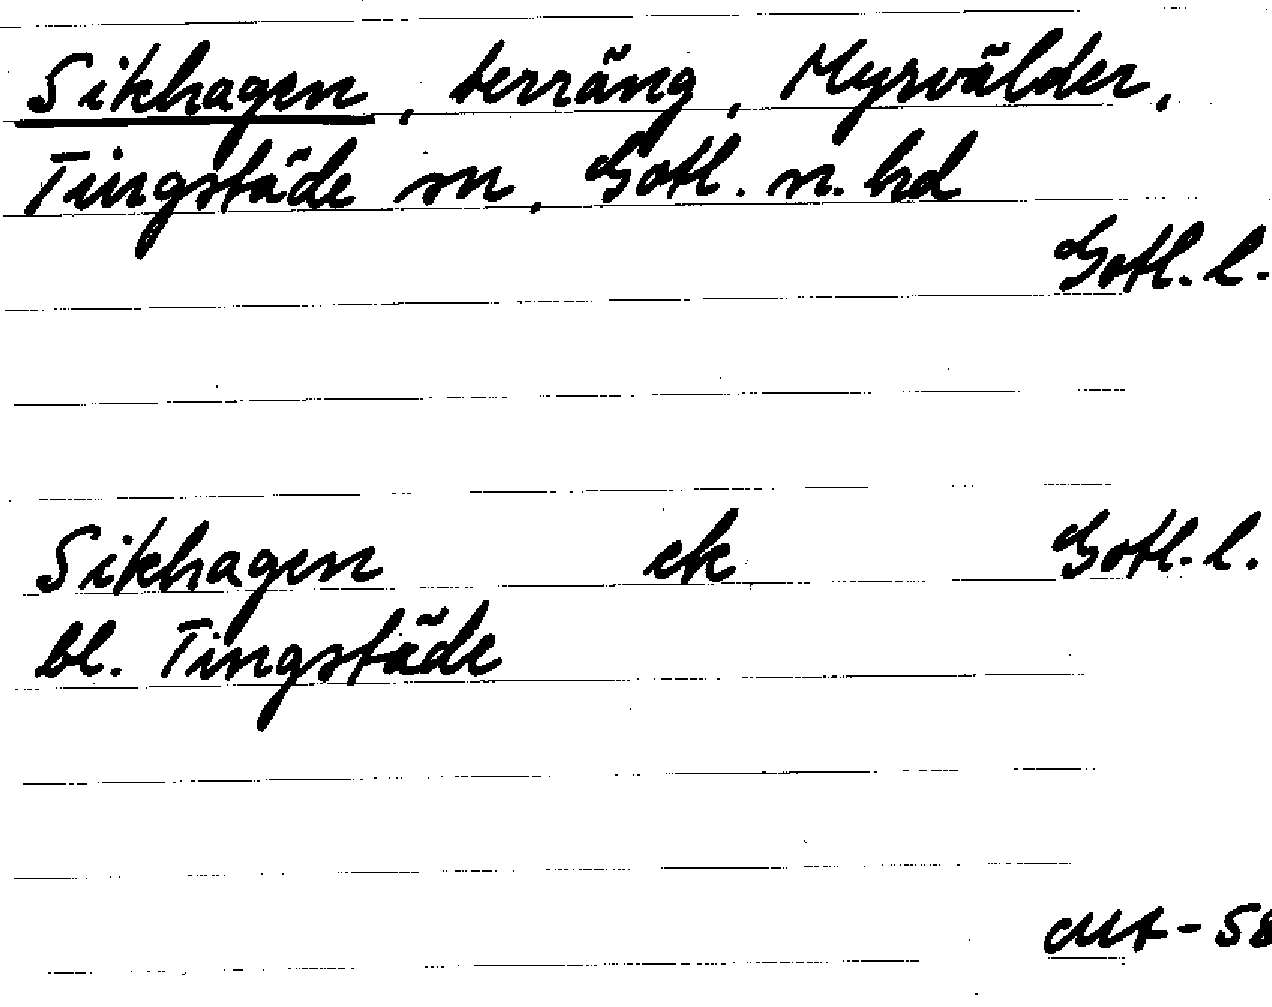 Sikhagen, terräng, Myrvälder,
Tingstäde sn, Gotl. n. hd
Gotl. l.
Sikhagen ek Gotl. l.
bl. Tingstäde